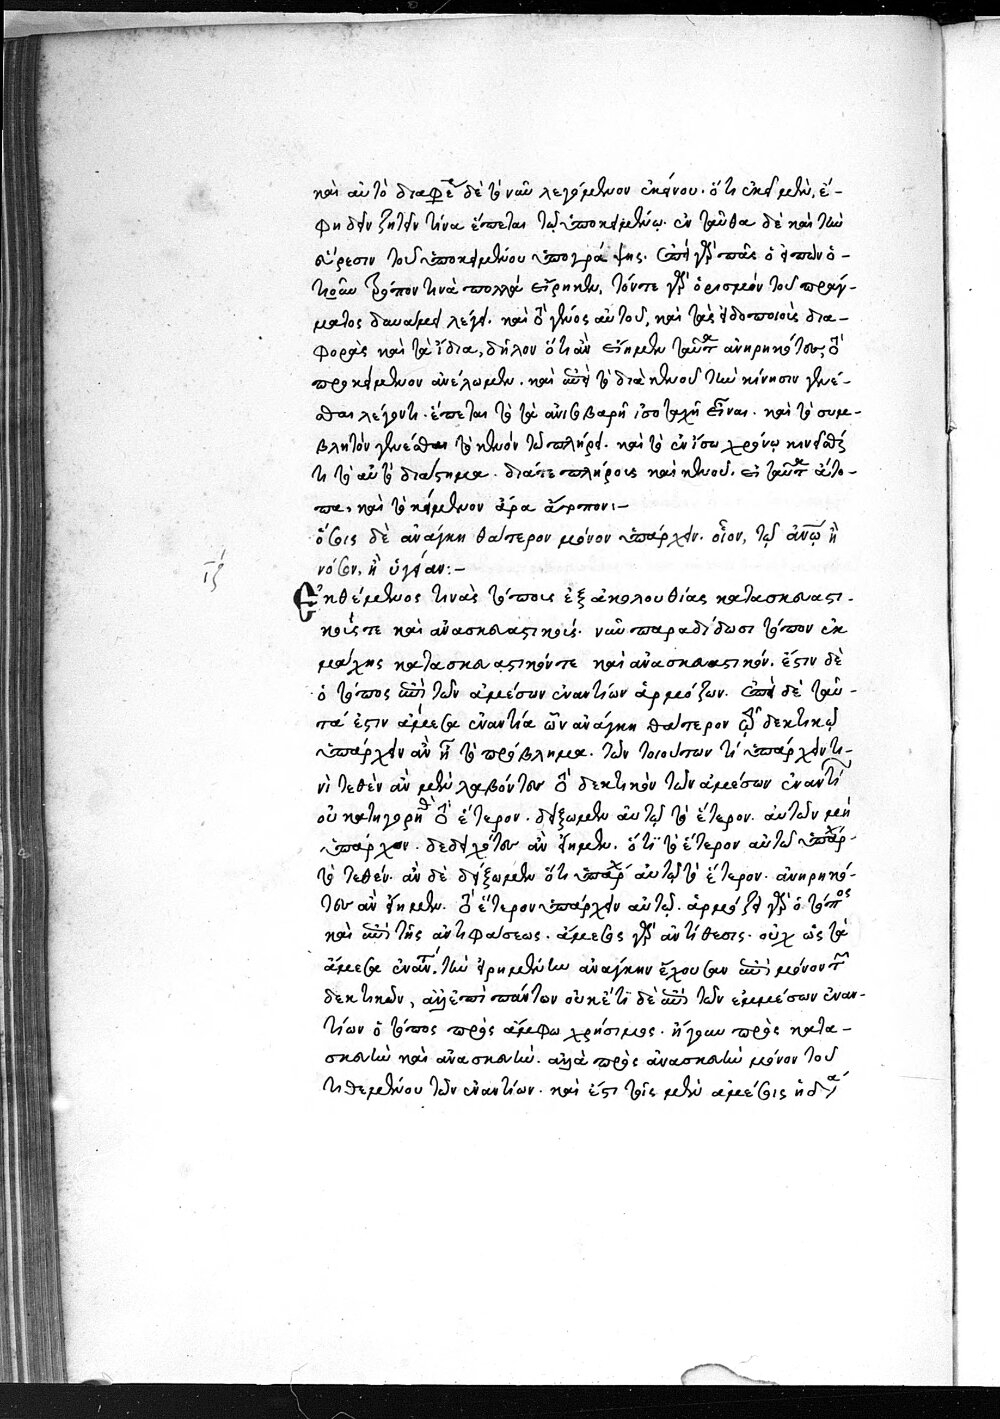 καὶ αὐτὸ διαφέρει δὲ τὸ νῦν λεγόμενον ἐκείνου. ὅτι ἐκεῖ μὲν, ἔ-
φη δεῖν ζητεῖν τίνα ἕπεται τῷ ὑποκειμένῳ. ἐνταῦθα δὲ καὶ τὴν
εὕρεσιν τοῦ ὑποκειμένου ὑπογράφει. ἐπεὶ γὰρ πᾶς ὁ εἰπὼν ὁ-
τιοῦν τρόπον τινὰ πολλὰ εἴρηκεν, τόν τε γὰρ ὁρισμὸν τοῦ πράγ-
ματος δυνάμει λέγει. καὶ τὸ γένος αὐτοῦ, καὶ τὰς εἰδοποιοὺς δια-
φορὰς καὶ τὰ ἴδια, δῆλον ὅτι ἂν εἴημεν ταῦτα ἀνῃρηκότες τὸ
προκείμενον ἀνέλωμεν. καὶ ἐπεὶ τὸ διὰ κενοῦ τὴν κίνησιν γενέ-
σθαι λέγοντι. ἕπεται τὸ τὰ ἀνισοβαρῆ ἰσοταχῆ εἶναι. καὶ τὸ συμ-
βλητὸν γενέσθαι τὸ κενὸν τῷ πλήρει. καὶ τὸ ἐν ἴσῳ χρόνῳ κινεῖσθαί
τι τὸ αὐτὸ διάστημα. διά τε πλήρους καὶ κενοῦ. εἰ ταῦτα ἄτο-
πα, καὶ τὸ κείμενον ἄρα ἄτοπον:-
ὅσοις δὲ ἀνάγκη θάτερον μόνον ὑπάρχειν. οἷον, τῷ ἀνθρώπῳ ἢ
νόσον, ἢ ὑγείαν:-
Ἐκθέμενος τινὰς τόπους ἐξ ἀκολουθίας κατασκευαστι-
κούς τε καὶ ἀνασκευαστικούς. νῦν παραδίδωσι τόπον ἐκ
μάχης κατασκευαστικόν τε καὶ ἀνασκευαστικόν. ἔστιν δὲ
ὁ τόπος ἐπὶ τῶν ἀμέσων ἐναντίων ἁρμόζων. ἐπεὶ δὲ ταῦ-
τά ἐστιν ἄμεσα ἐναντία ὧν ἀνάγκη θάτερον τῷ δεκτικῷ
ὑπάρχειν ἂν ᾖ τὸ πρόβλημα. τῶν τοιούτων τί ὑπάρχειν τι-
νὶ τεθὲν ἂν μὲν λαβόντες τὸ δεκτικὸν τῶν ἀμέσων ἐναντί
οὗ κατηγορηθὲν τὸ ἕτερον. δείξωμεν αὐτῷ τὸ ἕτερον. αὐτῶν μὴ
ὑπάρχον. δεδειχότες ἂν εἴημεν. ὅτι τὸ ἕτερον αὐτῷ ὑπάρχει
τὸ τεθέν. ἂν δὲ δείξωμεν ὅτι ὑπάρχει αὐτῷ τὸ ἕτερον. ἀνῃρηκό-
τες ἂν εἴημεν. τὸ ἕτερον ὑπάρχειν αὐτῷ. ἁρμόζει γὰρ ὁ τόπος
καὶ ἐπὶ τῆς ἀντιφάσεως. ἄμεσος γὰρ ἀντίθεσις. οὐχ ὡς τὰ
ἄμεσα ἐναντία. τὴν εἰρημένην ἀνάγκην ἔχουσαν ἐπὶ μόνον τῶν
δεκτικῶν, ἀλλ' ἐπὶ πάντων οὐκέτι δὲ ἐπὶ τῶν ἐμμέσων ἐναν-
τίων ὁ τόπος πρὸς ἄμφω χρήσιμος. ἤγουν πρὸς κατα-
σκευὴν καὶ ἀνασκευὴν. ἀλλὰ πρὸς ἀνασκευὴν μόνον τοῦ
τιθεμένου τῶν ἐναντίων. καὶ ἔστι τοῖς μὲν ἀμέσοις ἡ διὰ